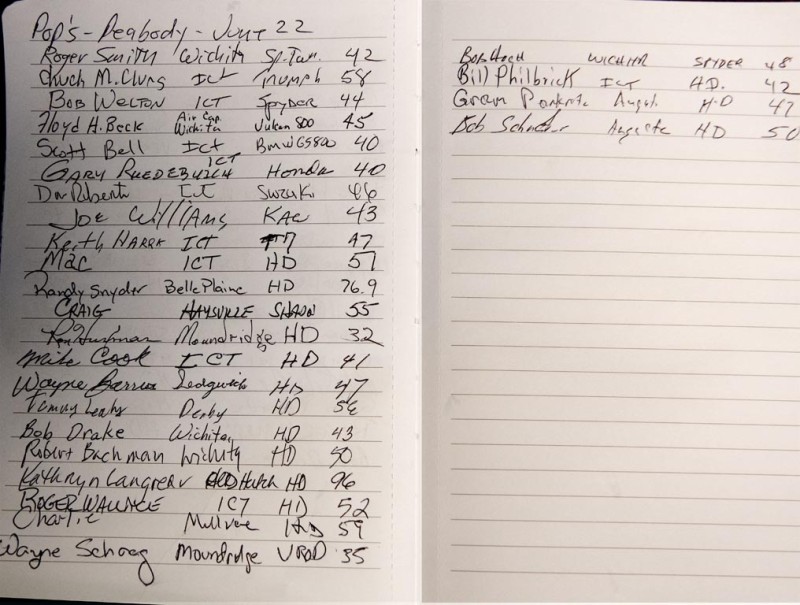 Pop's - Peabody - June 22
Roger Smith Wichita 42
Chuck M.Clurg ICT Triumph 58
Bob Welton ICT Spyder 44
Floyd H. Beck Air Cap Wichita Vulcan 800 45
Scott Bell ICT BMW GS800 40
Gary ICT Honda 40
Don Roberts ICT Suzuki 46
Joe Williams Kaw 43
Keith ICT 47
Mac ICT HD 57
Randy Snyder Belle Plaine HD 76.9
Craig Haysville Shadow 55
Moundridge HD 32
Mike Cook ICT HD 41
Wayne Sedgwick HD 47
Tommy Derby HD
Bob Drake Wichita HD 43
Robert Bachman Wichita HD 50
Kathryn Langrehr Hutch HD 96
Roger Wallace ICT HD 52
Charlie Mulvane HD 59
Wayne Schrag Moundridge VROD 35
Bob Wichita Spyder 48
Bill Philbrick ICT H.D. 42
August H-D 47
Bob Augusta HD 50